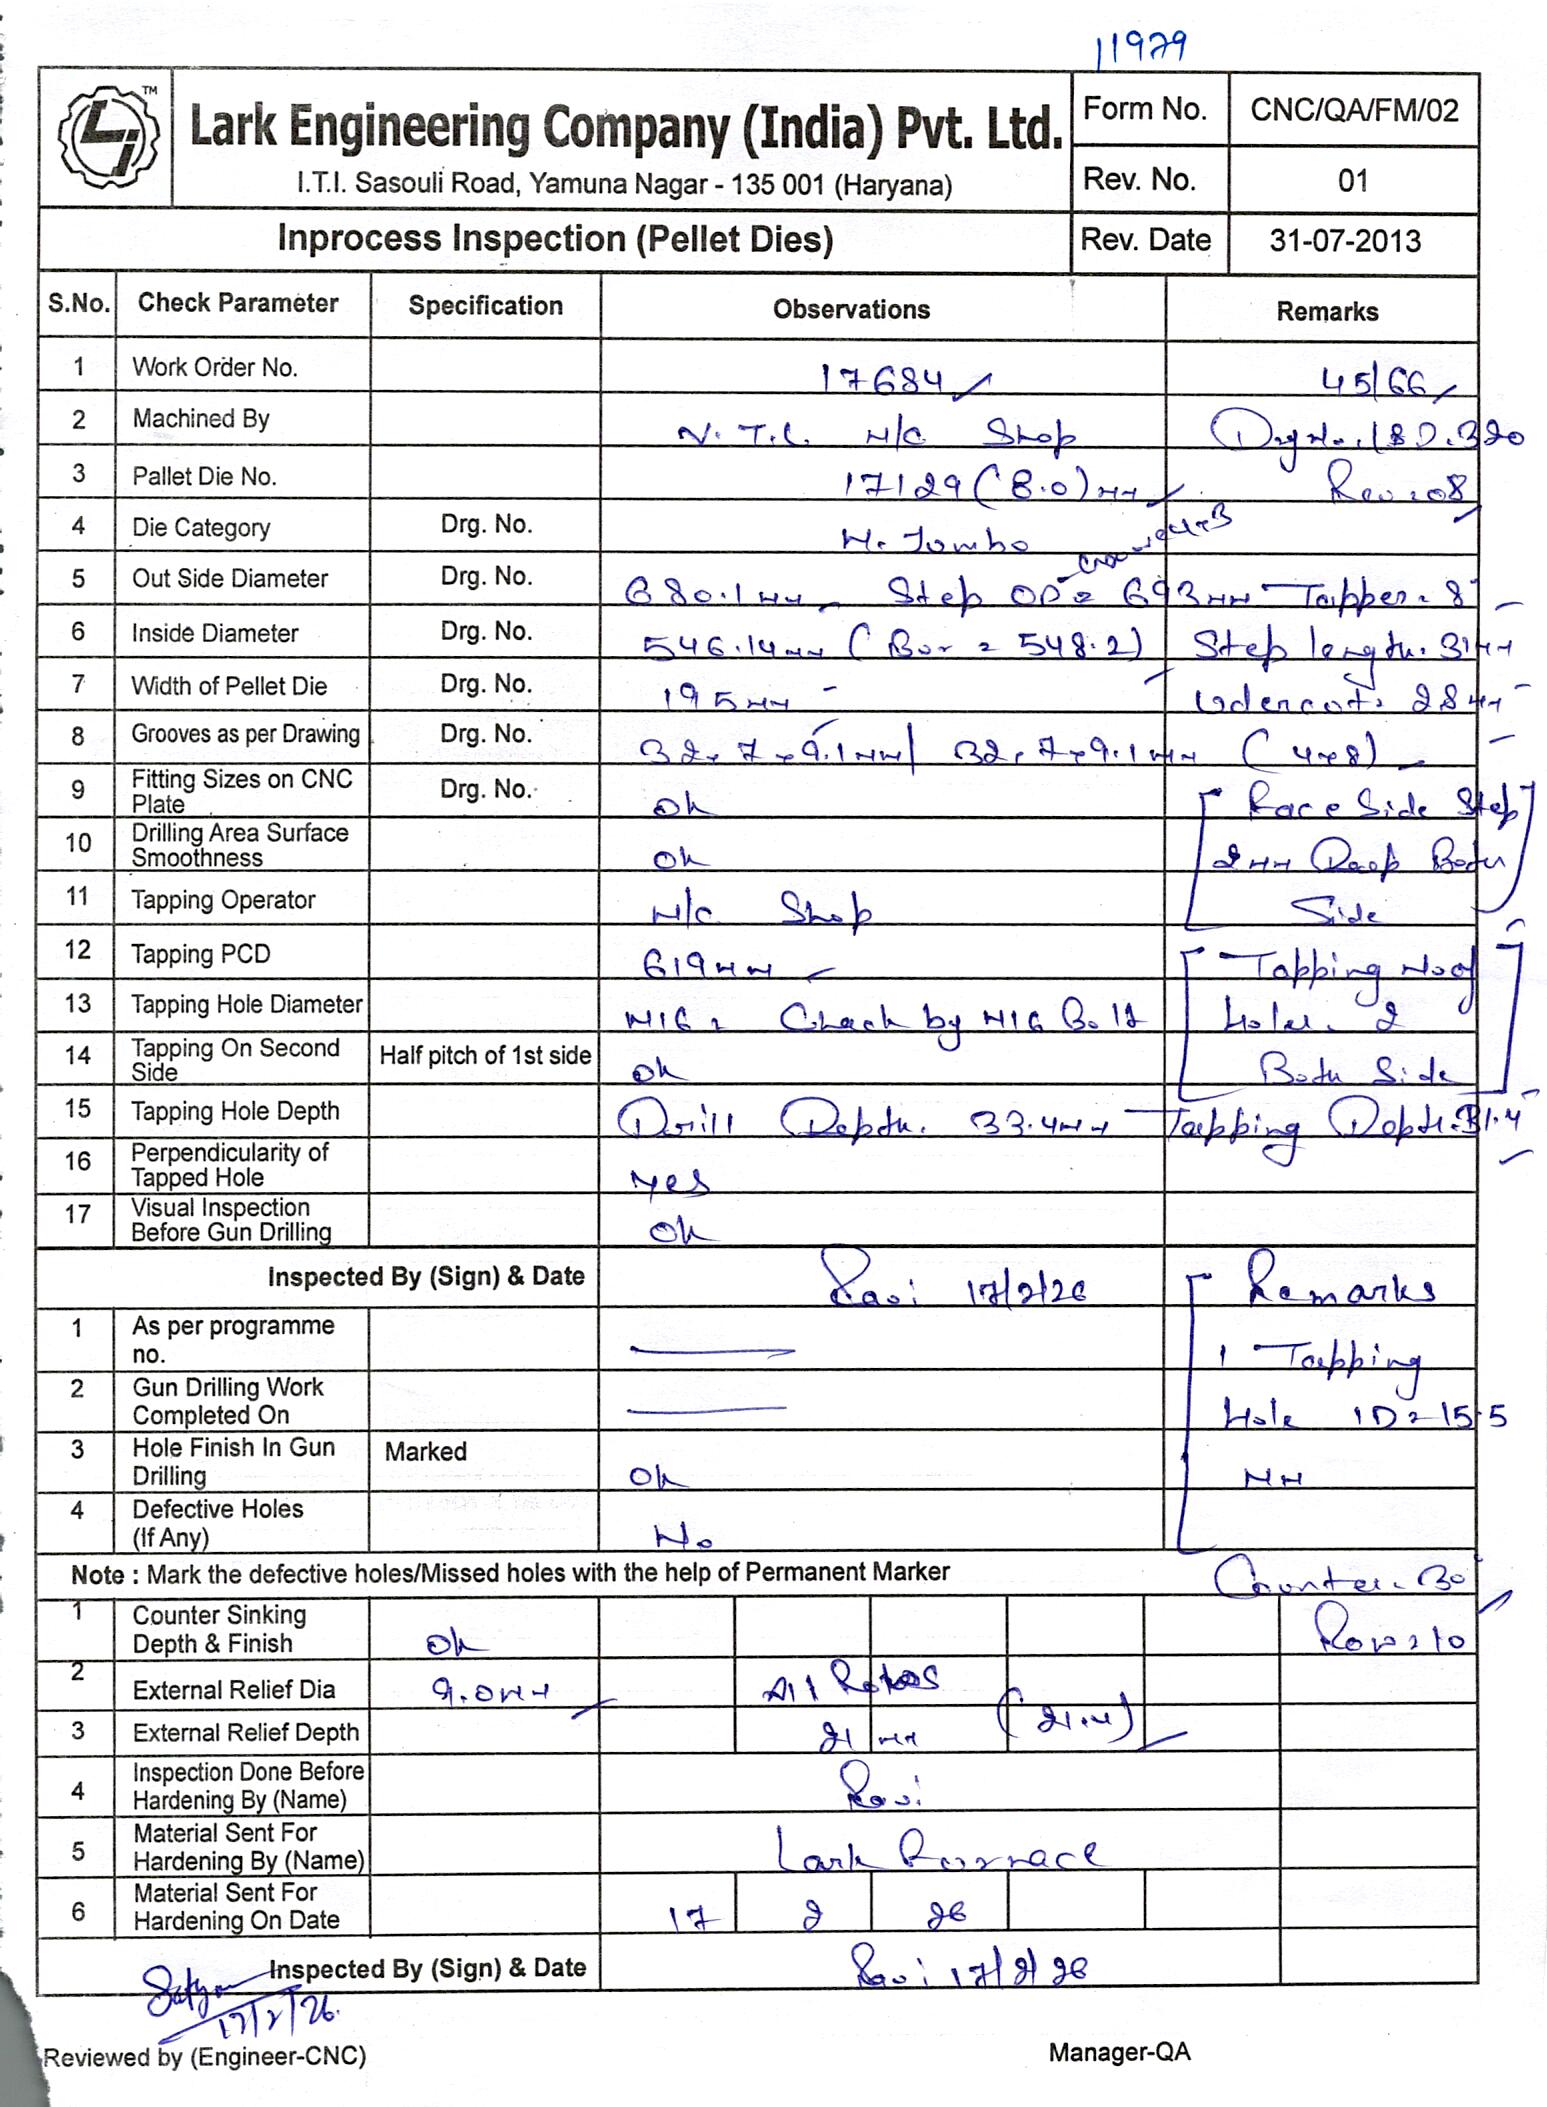 11979
TM
Lark Engineering Company (India) Pvt. Ltd.
I.T.I. Sasouli Road, Yamuna Nagar - 135 001 (Haryana)
Form No. CNC/QA/FM/02
Rev. No. 01
Inprocess Inspection (Pellet Dies) Rev. Date 31-07-2013
S.No. Check Parameter Specification Observations Remarks
1 Work Order No. 17684 45/66
2 Machined By M/C Shop
3 Pallet Die No. 17129 (8.0) mm Rev: 08
4 Die Category Drg. No. H. Jumbo
5 Out Side Diameter Drg. No. 680.1mm Step OD = 693mm Tapper. 8
6 Inside Diameter Drg. No. 546.14mm (Bor = 548.2) Step length. 31mm
7 Width of Pellet Die Drg. No. 195mm Udercot. 28mm
8 Grooves as per Drawing Drg. No. 32 x 7 x 9.1mm / 32 x 7 x 9.1mm (4x8)
9 Fitting Sizes on CNC Plate Drg. No. Ok Race Side Step
10 Drilling Area Surface Smoothness Ok 2mm Deep Both
11 Tapping Operator M/C Shop Side
12 Tapping PCD 619mm Tapping No of
13 Tapping Hole Diameter M16 = Check by M16 Bolt Holes. 2
14 Tapping On Second Side Half pitch of 1st side Ok Both Side
15 Tapping Hole Depth Drill Depth. 33.4mm Tapping Depth. 31.4
16 Perpendicularity of Tapped Hole Yes
17 Visual Inspection Before Gun Drilling Ok
Inspected By (Sign) & Date Ravi 17/2/26 Remarks
1 As per programme no. 1 Tapping
2 Gun Drilling Work Completed On Hole ID = 15.5
3 Hole Finish In Gun Drilling Marked Ok mm
4 Defective Holes (If Any) No
Note : Mark the defective holes/Missed holes with the help of Permanent Marker Counter. 30
1 Counter Sinking Depth & Finish Ok Row = 10
2 External Relief Dia 9.0mm All
3 External Relief Depth 21 mm (21.4)
4 Inspection Done Before Hardening By (Name) Ravi
5 Material Sent For Hardening By (Name) Lark Furnace
6 Material Sent For Hardening On Date 17 2 26
Inspected By (Sign) & Date Ravi 17/2/26
17/2/26
Reviewed by (Engineer-CNC) Manager-QA